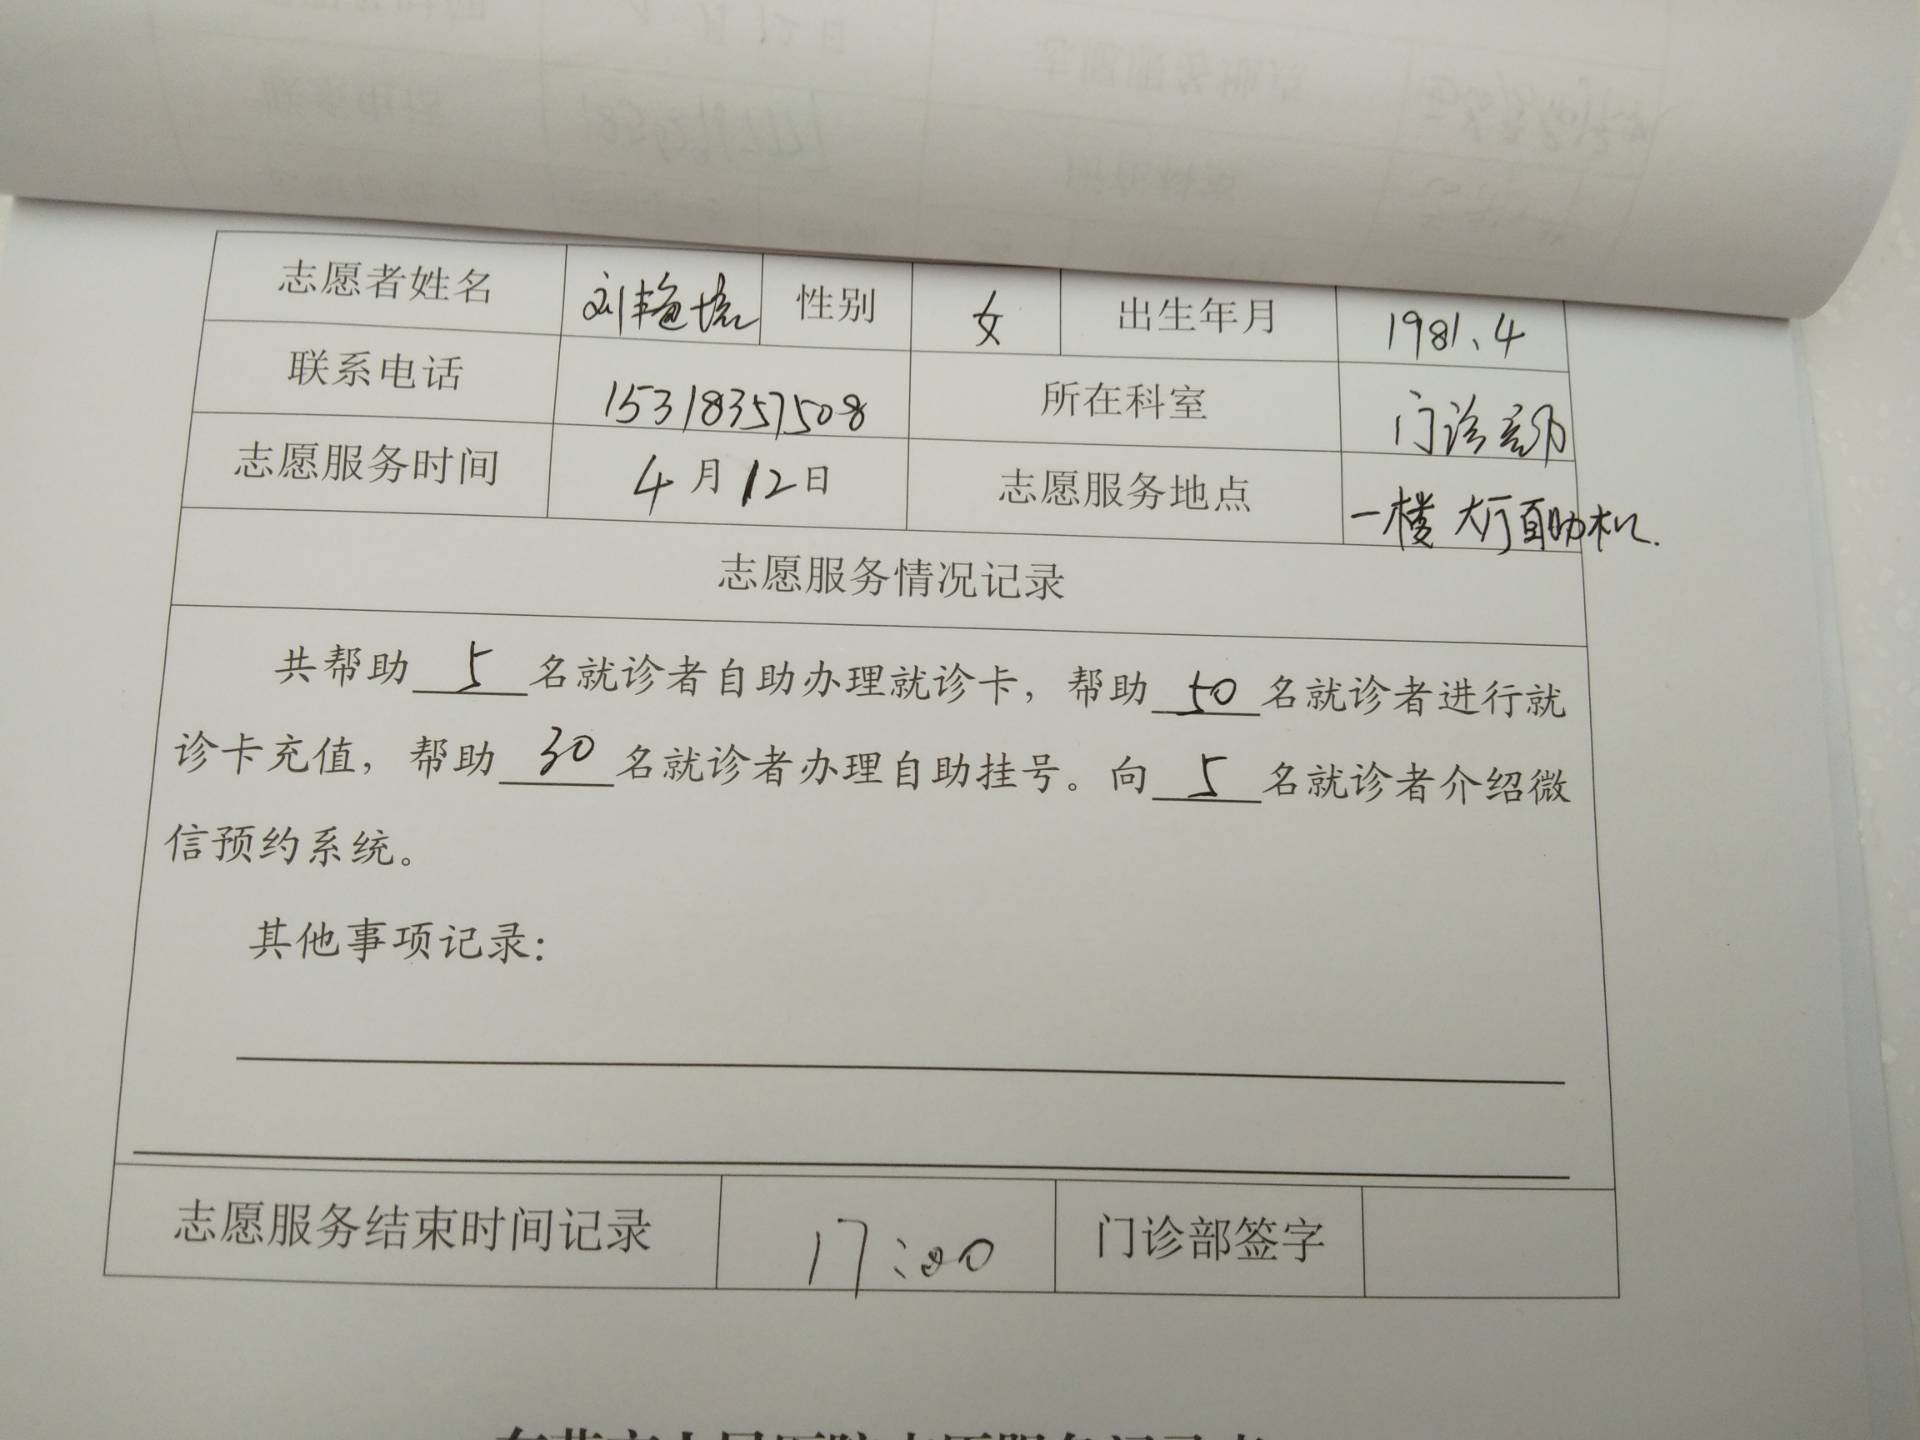 志愿者姓名 刘艳 性别 女 出生年月 1981、4
联系电话 15318357508 所在科室 门诊部
志愿服务时间 4月12日 志愿服务地点 一楼大厅自助机.
志愿服务情况记录
共帮助 5 名就诊者自助办理就诊卡，帮助 50 名就诊者进行就
诊卡充值，帮助 30 名就诊者办理自助挂号。向 5 名就诊者介绍微
信预约系统。
其他事项记录：
志愿服务结束时间记录 17:00 门诊部签字